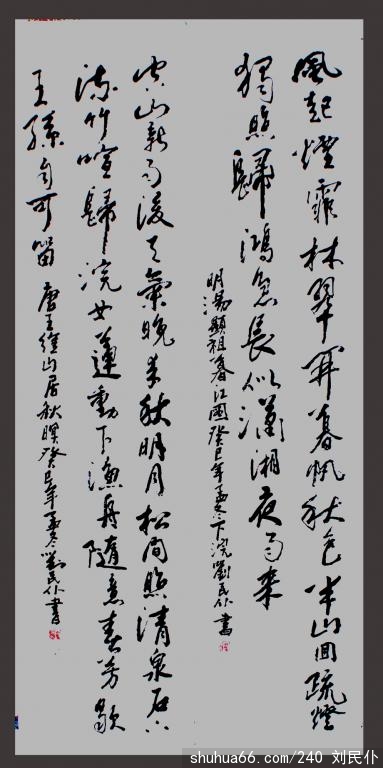 風起煙霏林翠開暮帆秋色半山回疏燈
獨照歸鴻急長似瀟湘夜雨来
明湯顯祖暮江圖癸巳年孟冬下浣劉民仆書
空山新雨後天氣晚来秋明月松間照清泉石上
流竹喧歸浣女蓮動下漁舟隨意春芳歇
王孫自可留 唐王維山居秋暝癸巳年孟冬劉民仆書
shuhua66.com/240 刘民仆